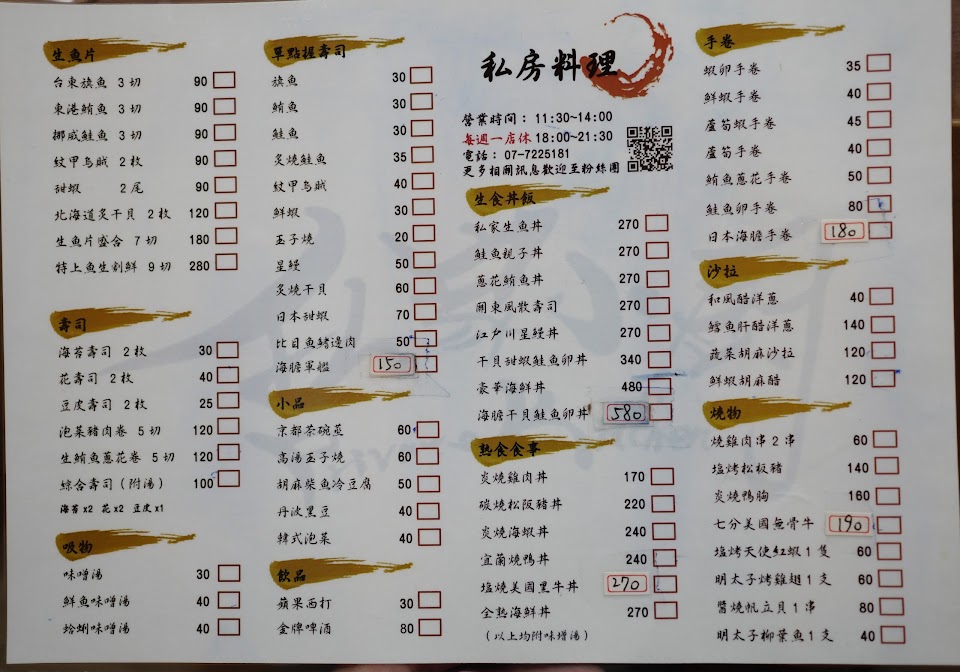 生魚片
台東旗魚 3切 90
東港鮪魚 3切 90
挪威鮭魚 3切 90
紋甲烏賊 2枚 90
甜蝦 2尾 90
北海道炙干貝 2枚 120
生魚片盛合 7切 180
特上魚生刺鮮 9切 280
壽司
海苔壽司 2枚 30
花壽司 2枚 40
豆皮壽司 2枚 25
泡菜豬肉卷 5切 120
生鮪魚蔥花卷 5切 120
綜合壽司(附湯) 100
海苔x2 花x2 豆皮x1
吸物
味噌湯 30
鮮魚味噌湯 40
蛤蜊味噌湯 40
單點握壽司
旗魚 30
鮪魚 30
鮭魚 30
炙燒鮭魚 35
紋甲烏賊 40
鮮蝦 30
玉子燒 20
星鰻 50
炙燒干貝 60
日本甜蝦 70
比目魚鰭邊肉 50
海膽軍艦 150
小品
京都茶碗蒸 60
高湯玉子燒 60
胡麻柴魚冷豆腐 50
丹波黑豆 40
韓式泡菜 40
飲品
蘋果西打 30
金牌啤酒 80
私房料理
營業時間：11:30~14:00
每週一店休 18:00~21:30
電話：07-7225181
更多相關訊息歡迎至粉絲團
生食丼飯
私家生魚丼 270
鮭魚親子丼 270
蔥花鮪魚丼 270
關東風散壽司 270
江戶川星鰻丼 270
干貝甜蝦鮭魚卵丼 340
豪華海鮮丼 480
海膽干貝鮭魚卵丼 580
熟食食事
炭燒雞肉丼 170
碳燒松阪豬丼 220
炭燒海蝦丼 240
宜蘭燒鴨丼 240
塩燒美國黑牛丼 270
全熟海鮮丼 270
(以上均附味增湯)
手卷
蝦卵手卷 35
鮮蝦手卷 40
蘆筍蝦手卷 45
蘆筍手卷 40
鮪魚蔥花手卷 50
鮭魚卵手卷 80
日本海膽手卷 180
沙拉
和風醋洋蔥 40
鱈魚肝醋洋蔥 140
蔬菜胡麻沙拉 120
鮮蝦胡麻醋 120
燒物
燒雞肉串2串 60
塩烤松板豬 140
炭燒鴨胸 160
七分美國無骨牛 190
塩烤天使紅蝦1隻 60
明太子烤雞翅1支 60
醬燒帆立貝1串 80
明太子柳葉魚1支 40